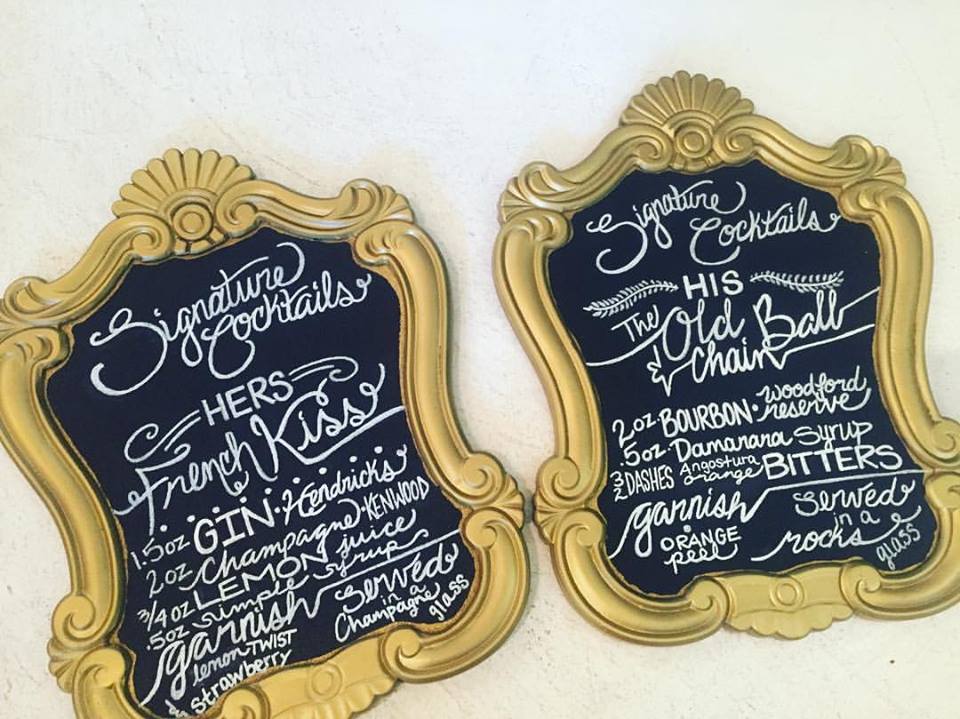 Signature
Cocktails
HERS
French Kiss
1.5oz GIN · Hendricks
2oz Champagne · KENWOOD
3/4oz LEMON juice
.5oz simple syrup
garnish
lemon TWIST
& strawberry
Served
in a
Champagne
glass
Signature
Cocktails
HIS
The Old Ball
& Chain
2oz BOURBON · Woodford reserve
.5oz Damarara Syrup
3 DASHES Angostura BITTERS
2 orange
garnish
ORANGE
peel
Served
in a
rocks
glass